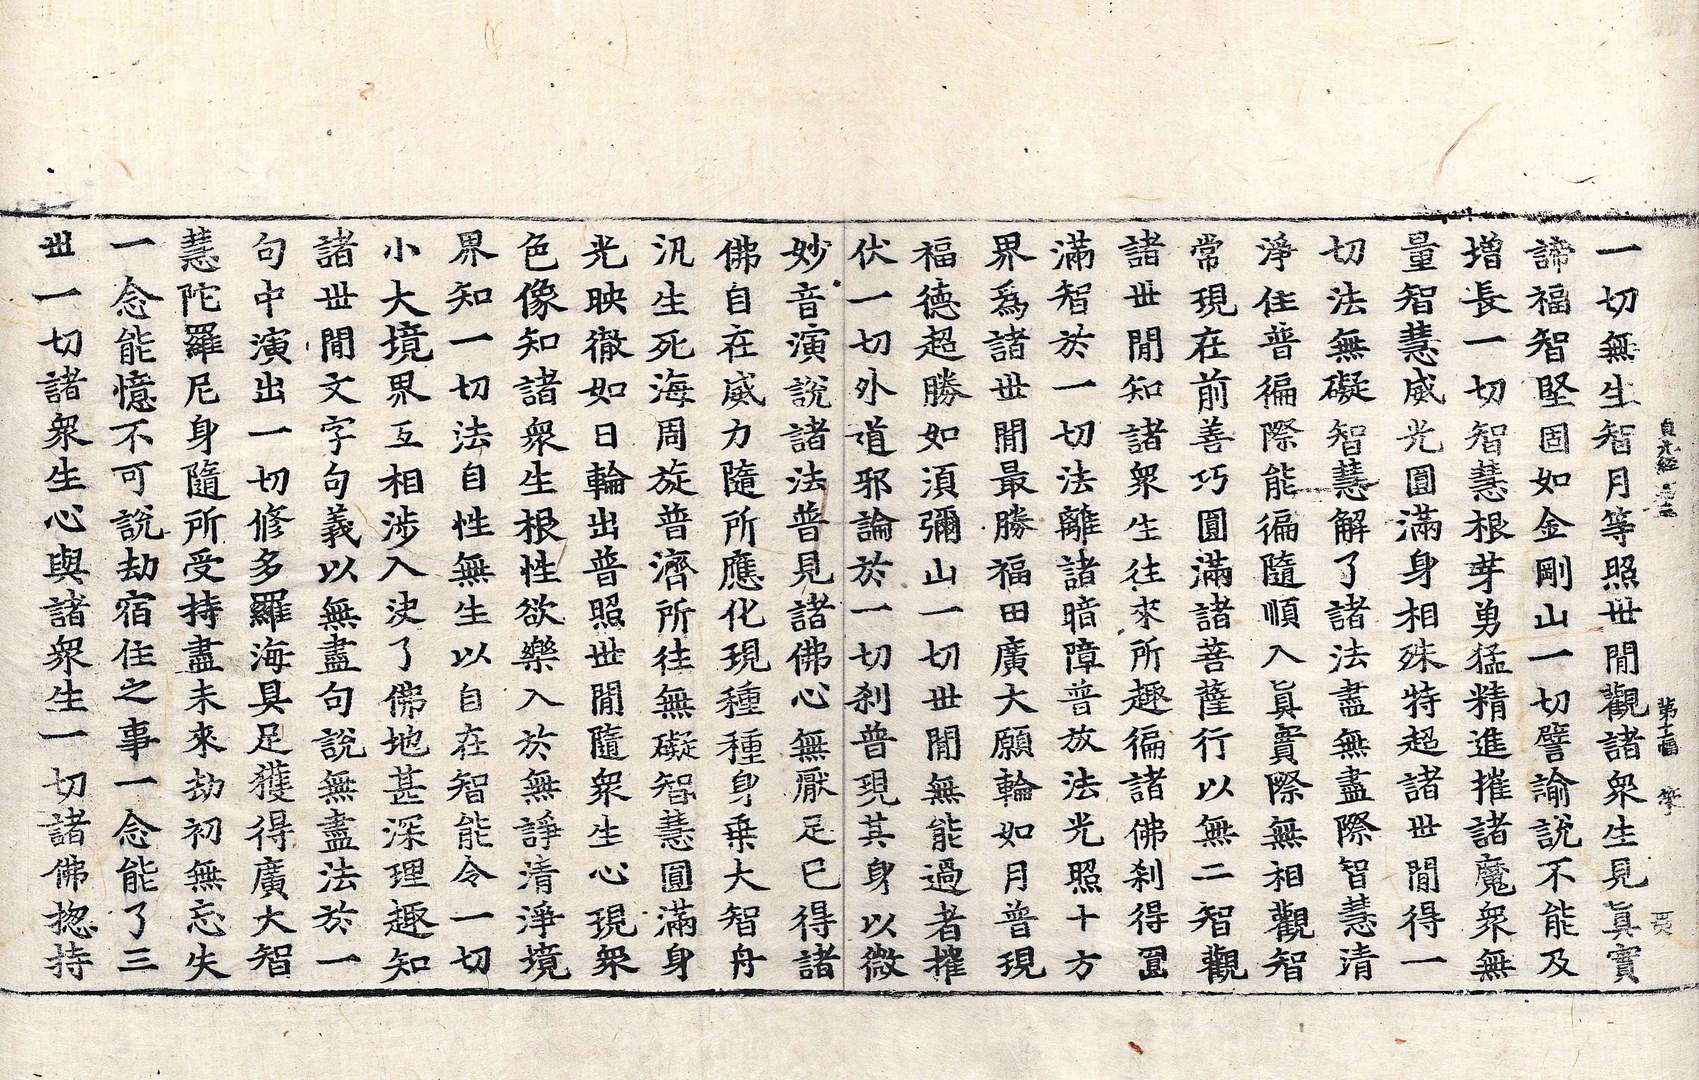 貞元經
第十一幅
一切無生智月等照世閒觀諸衆生見眞實
諦福智堅固如金剛山一切譬諭說不能及
增長一切智慧根芽勇猛精進摧諸魔衆無
量智慧威光圓滿身相殊特超諸世閒得一
切法無礙智慧解了諸法盡無盡際智慧清
淨住普徧際能徧隨順入眞實際無相觀智
常現在前善巧圓滿諸菩薩行以無二智觀
諸世閒知諸衆生往來所趣徧諸佛刹得圓
滿智於一切法離諸暗障普放法光照十方
界爲諸世閒最勝福田廣大願輪如月普現
福德超勝如須彌山一切世閒無能過者摧
伏一切外道邪論於一切刹普現其身以微
妙音演說諸法普見諸佛心無厭足已得諸
佛自在威力隨所應化現種種身乗大智舟
汎生死海周旋普濟所往無礙智慧圓滿身
光映徹如日輪出普照世閒隨衆生心現衆
色像知諸衆生根性欲樂入於無諍清淨境
界知一切法自性無生以自在智能令一切
小大境界互相涉入決了佛地甚深理趣知
諸世閒文字句義以無盡句說無盡法於一
句中演出一切修多羅海具足獲得廣大智
慧陀羅尼身隨所受持盡未來劫初無忘失
一念能憶不可說劫宿住之事一念能了三
世一切諸衆生心與諸衆生一切諸佛揔持